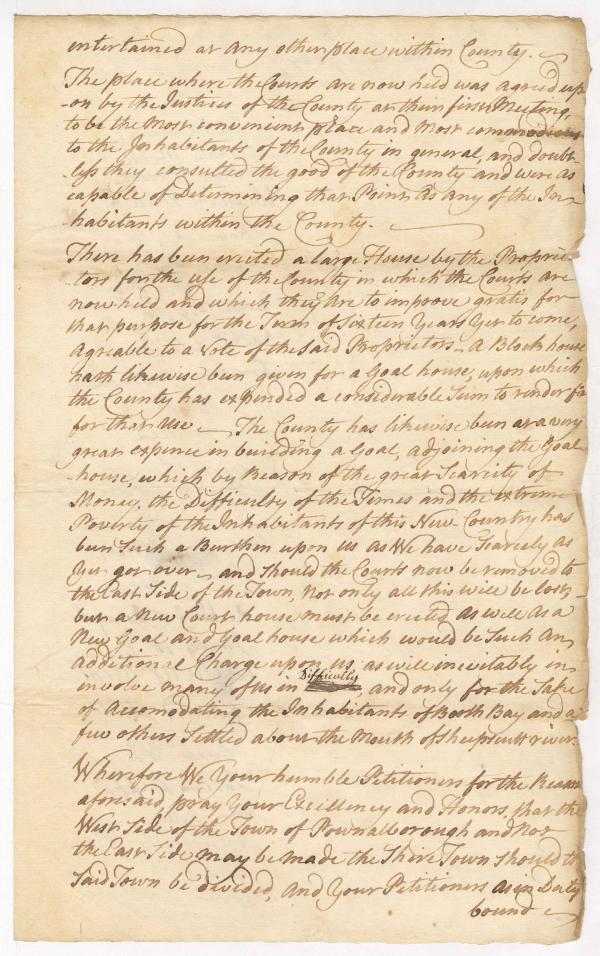 entertained at any other place within County.
The place where the Courts are now held was agreed up
-on by the Justices of the County at their first Meeting,
to be the Most convenient place and Most commodious
to the Inhabitants of the County in general, and doubt-
-less they consulted the good of the County and were as
capable of Determining that Point as any of the In-
-habitants within the County.
There has been erected a large House by the Proprie
-tors for the use of the County in which the Courts are
now held and which they are to improve gratis for
that purpose for the Term of Sixteen Years Yet to come,
Agreable to a Vote of the said Proprietors - A Block house
hath likewise been given for a Goal house, upon which
the County has expended a considerable Sum to render fit
for that Use - The County has likewise been at a very
great expence in building a Goal, adjoining the Goal
-house, which by Reason of the great Scarcity of
Money, the Difficulty of the Times and the extreme
Poverty of the Inhabitants of this New Country has
been Such a Burthen upon us as We have Scarcely as
Yet got over - and should the Courts now be removed to
the East Side of the Town, Not only all this will be lost,
but a New Court house must be erected as well as a
New Goal and Goal house which would be Such an
additional Charge upon us, as will inevitably in-
involve many of us in Difficulty and only for the Sake
of Accomodating the Inhabitants of Booth Bay and a
few others Settled about the Mouth of Sheepscutt river.
Wherefore We Your humble Petitioners for the Reasons
aforesaid, pray Your Excellency and Honors, that the
West Side of the Town of Pownalborough and Not
the East Side may be made the Shire Town should the
Said Town be divided, and Your Petitioners as in Duty
bound